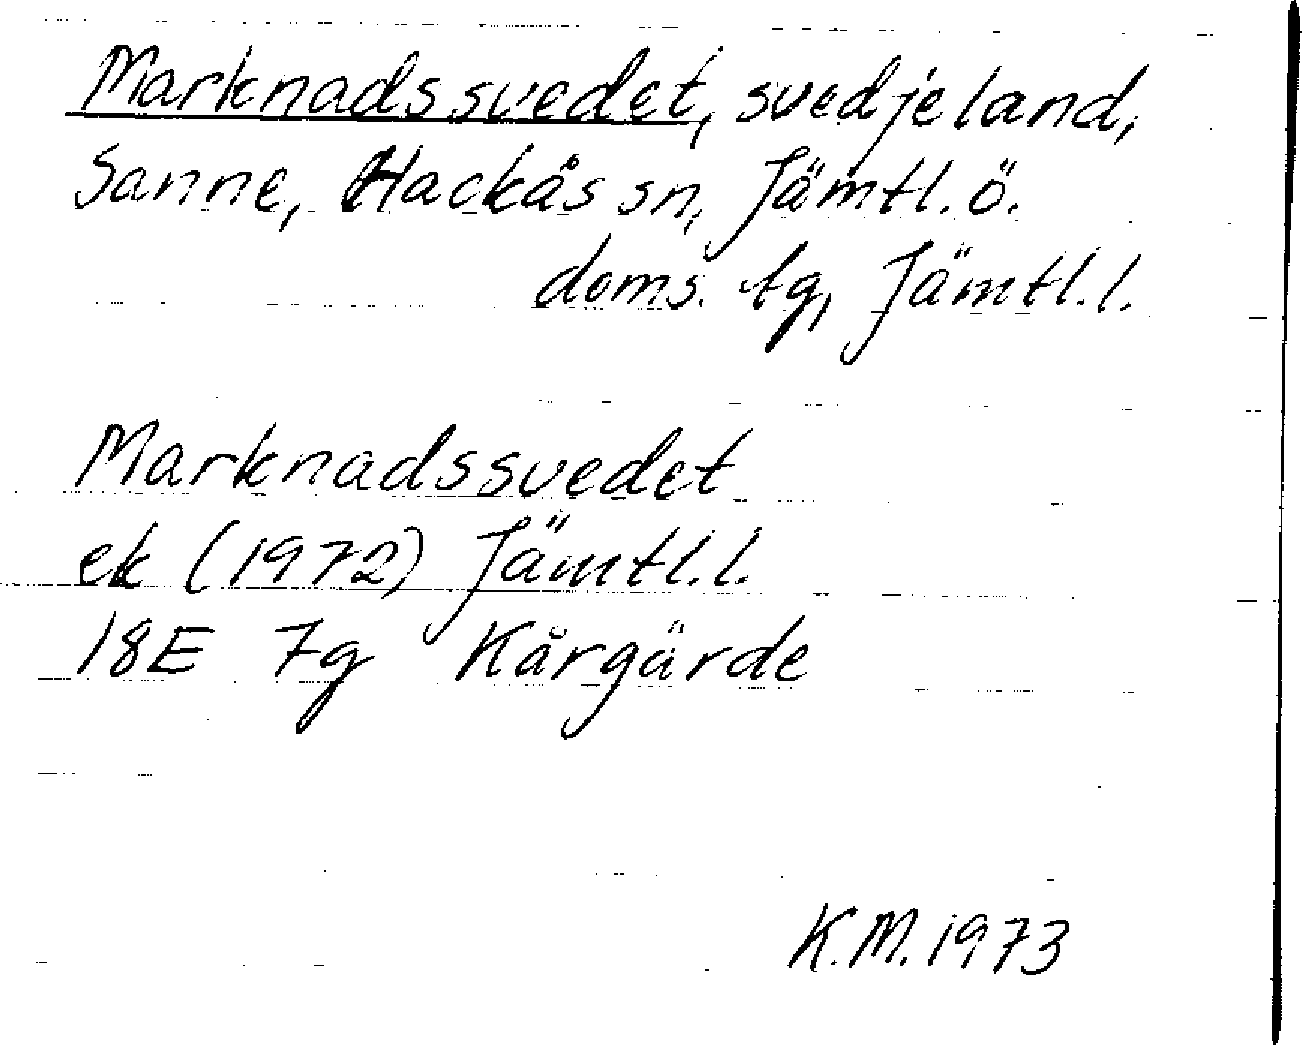 Marknadssvedet, svedjeland,
Sanne, Hackås sn, Jämtl. ö.
doms. tg, Jämtl. l.
Marknadssvedet
ek (1972) Jämtl. l.
18E 7g Kårgärde
K.M. 1973